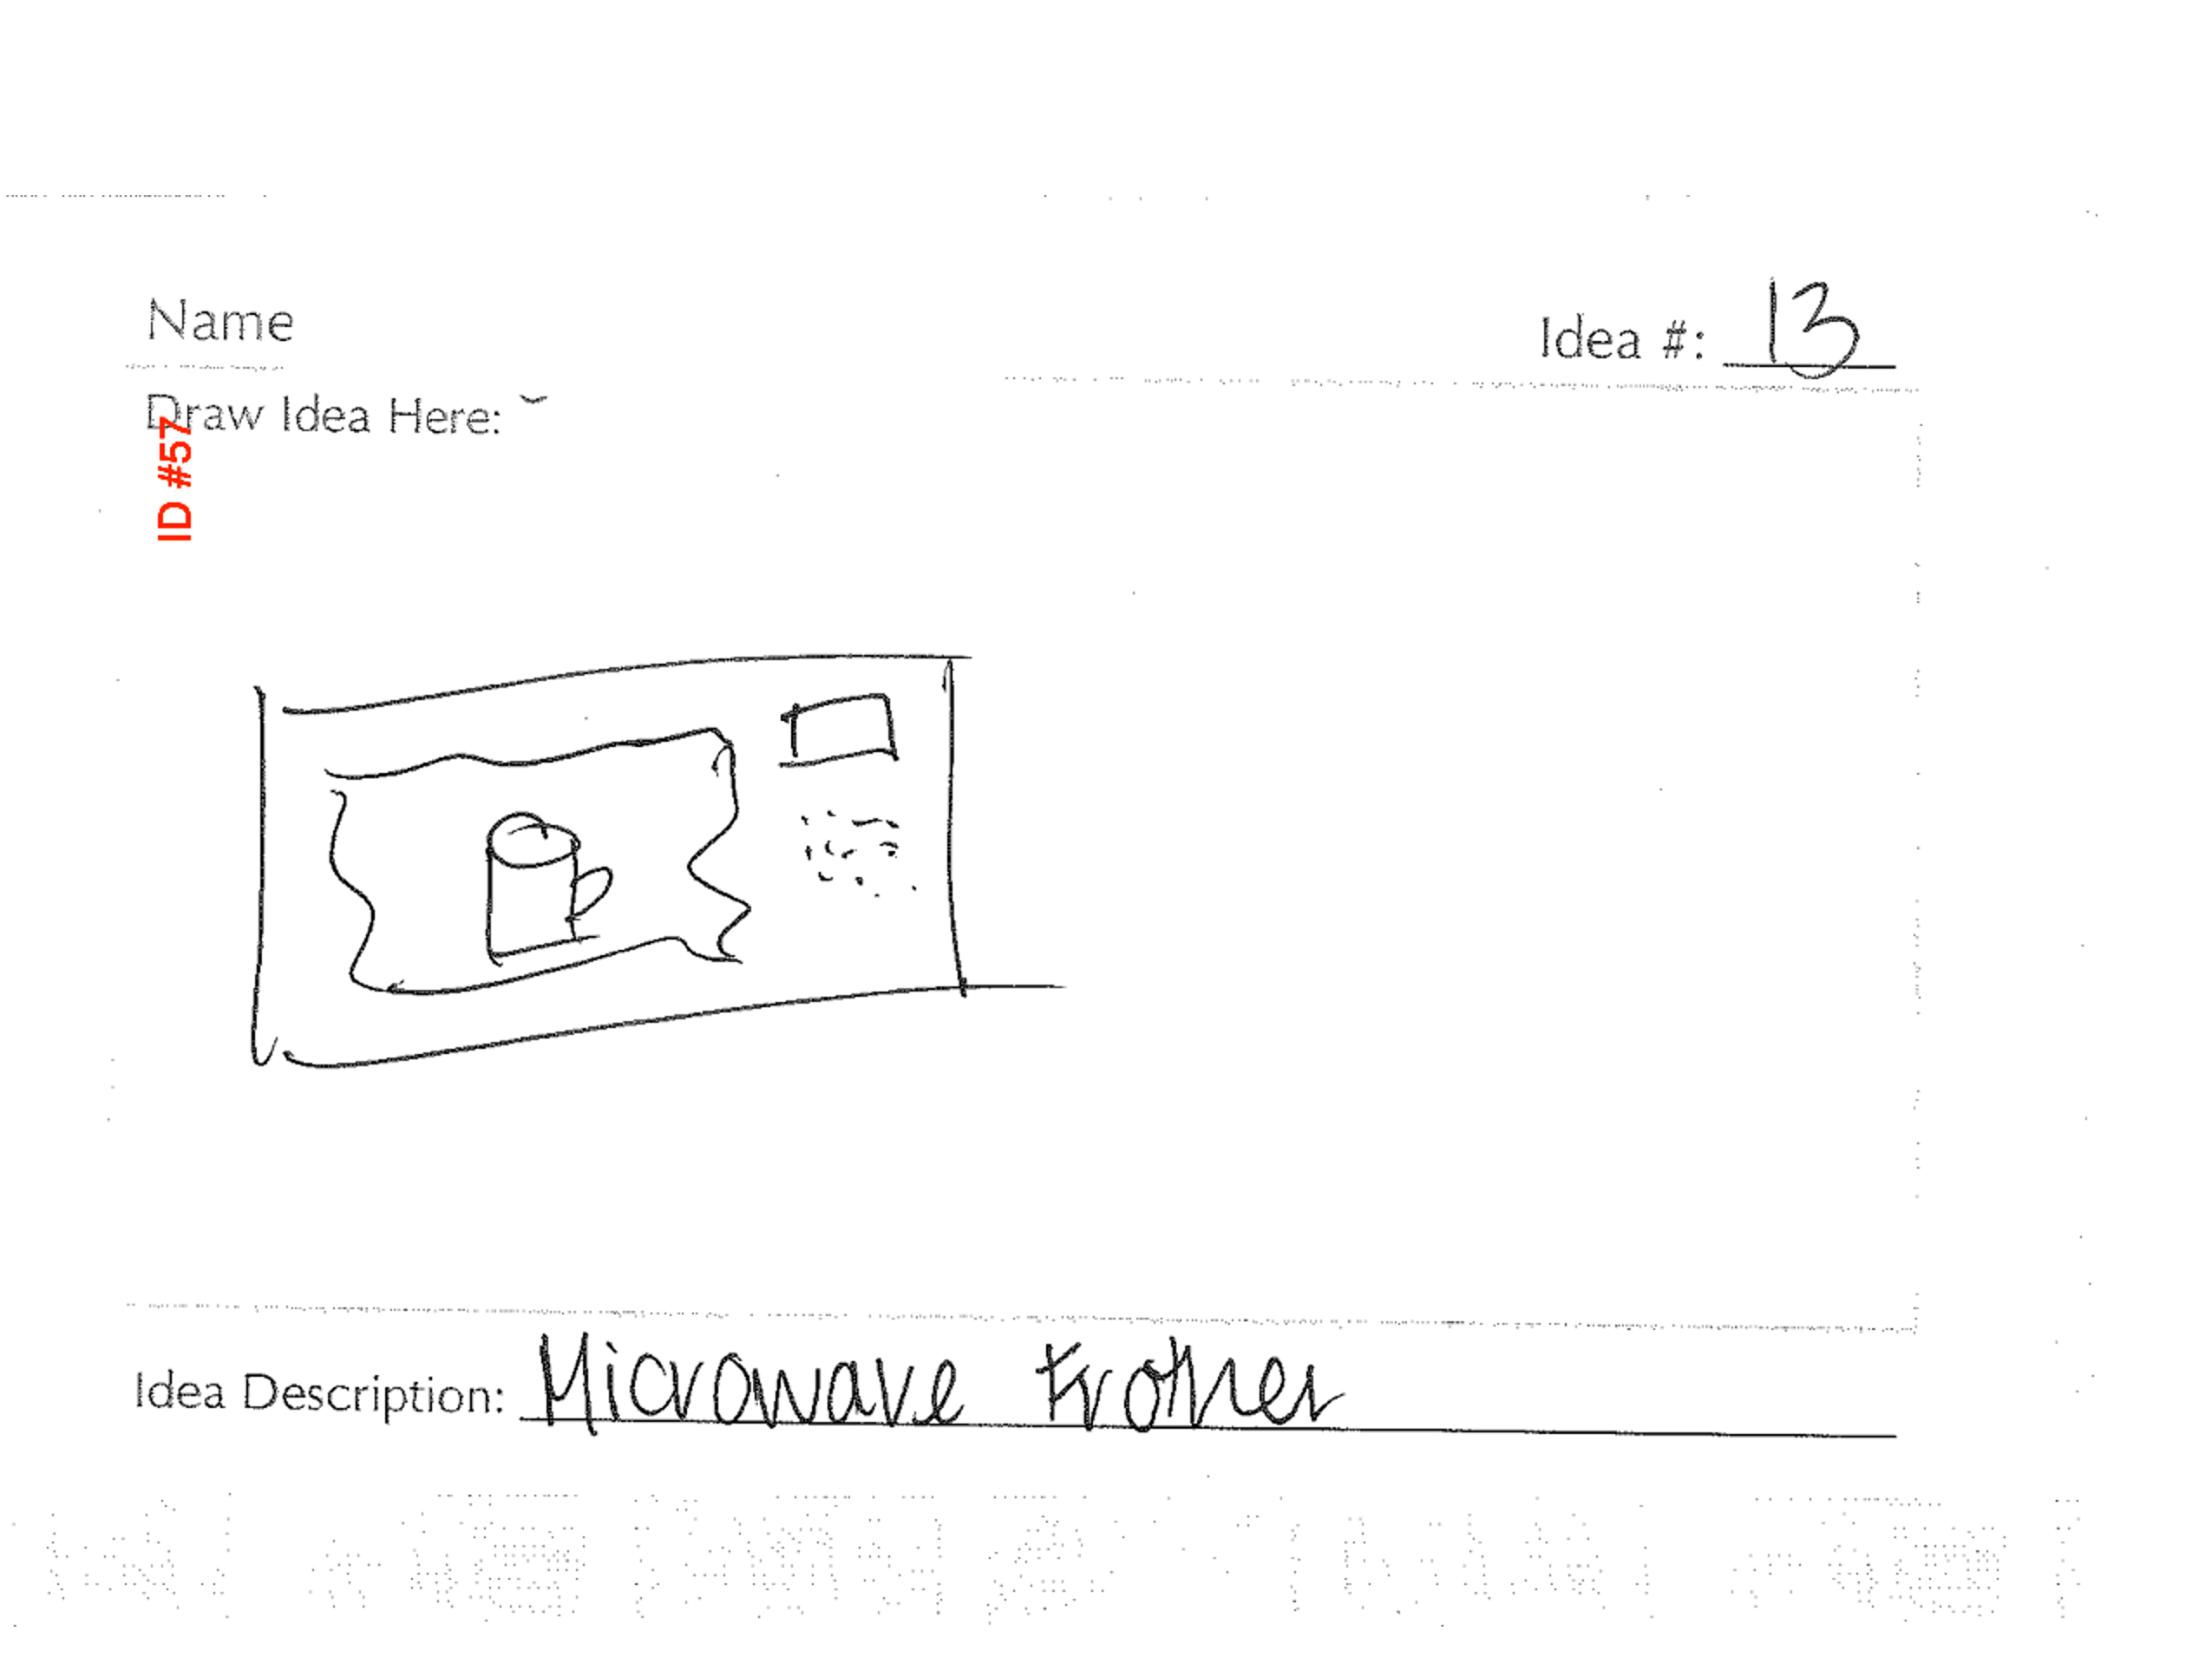 Name
Idea #: 13
Draw Idea Here:
ID #57
Idea Description: Microwave Frother